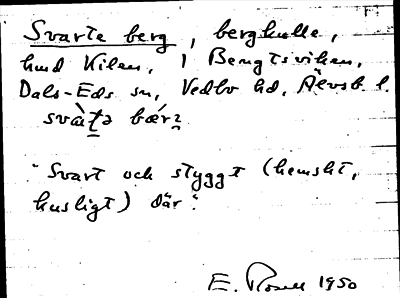 Svarte berg, bergkulle,
hmd Kilen, i Bengtsviken,
Dals-Eds sn, Vedbo hd, Älvsb. l.
svàt̠ə bær̠
"Svart och styggt (hemskt,
kusligt) där".
E. Rosell 1950